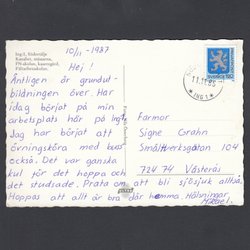 Ing 1, Södertälje
Kanslet, stёarna,
FN-skolan, kaserngård,
Fältarbetsskolan.
10/11 - 1987
Hej!
Äntligen är grundut-
bildningen över. Har
idag börjat på min
arbetsplats här på Ing1.
Jag har börjat att
övningsköra med buss
också. Det var ganska
kul för det hoppa och
det studsade. Prata om att bli sjösjuk alltså.
Hoppas att allt är bra där hemma. Hälsningar
Mikael.
Farmor
Signe Grahn
Smältverksgatan 104
724 74 Västerås
SVERIGE
11.11.
* ING 1 *